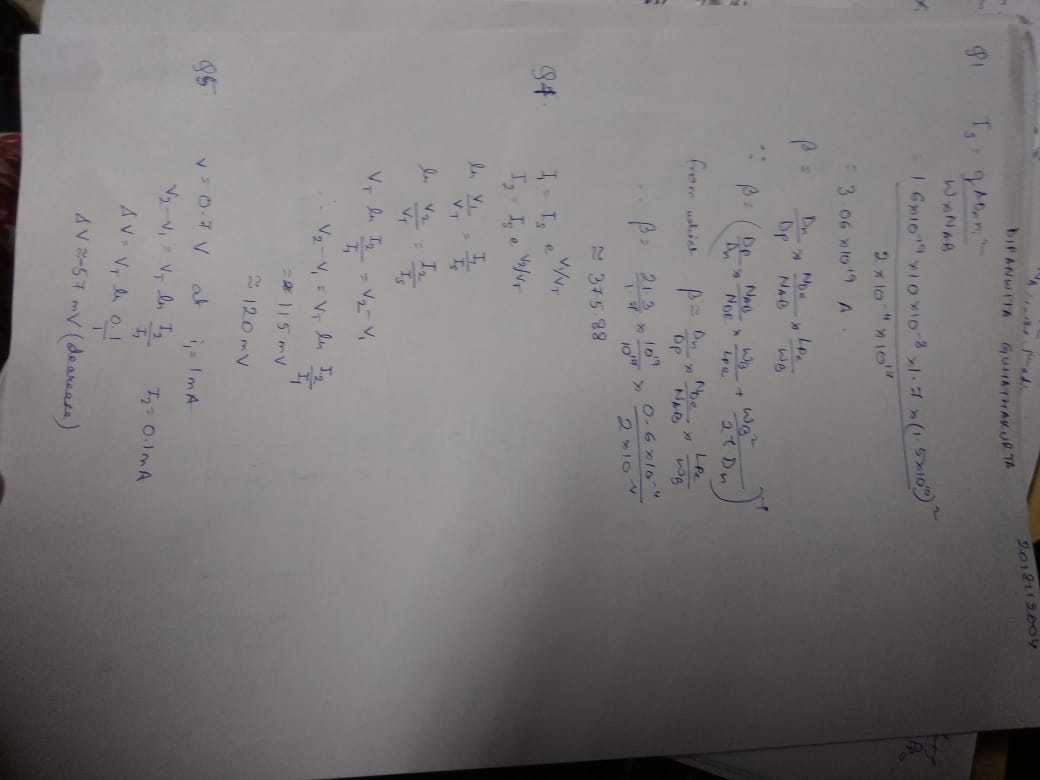 DIPANWITA GUHATHAKURTA 2018112004
Q1 I_s = qADn n_i^2 / W x NAB
= 1.6x10^-19 x 10x10^-8 x 1.7 x (1.5x10^10)^2 / 2x10^-4 x 10^17
= 3.06 x10^-19 A.
β = Dn/Dp x NDE/NAB x LPE/WB
∵ β = (Dp/Dn x NAB/NDE x WB/LPE + WB^2/2τDn)^-1
from which β = Dn/Dp x NDE/NAB x LPE/WB
∴ β = 21.3/1.7 x 10^19/10^17 x 0.6x10^-4/2x10^-4
≈ 375.88
Q4. I = I_s e^V/VT
I2 = I_s e^V2/VT
ln V1/VT = I/I_s
ln V2/VT = I2/I_s
VT ln I2/I1 = V2 - V1
∴ V2 - V1 = VT ln I2/I1
= 115 mV
≈ 120 mV
Q5 V = 0.7 V at i1 = 1mA
V2 - V1 = VT ln I2/I1 I2 = 0.1mA
ΔV = VT ln 0.1/1
ΔV ≈ -57 mV (decrease)